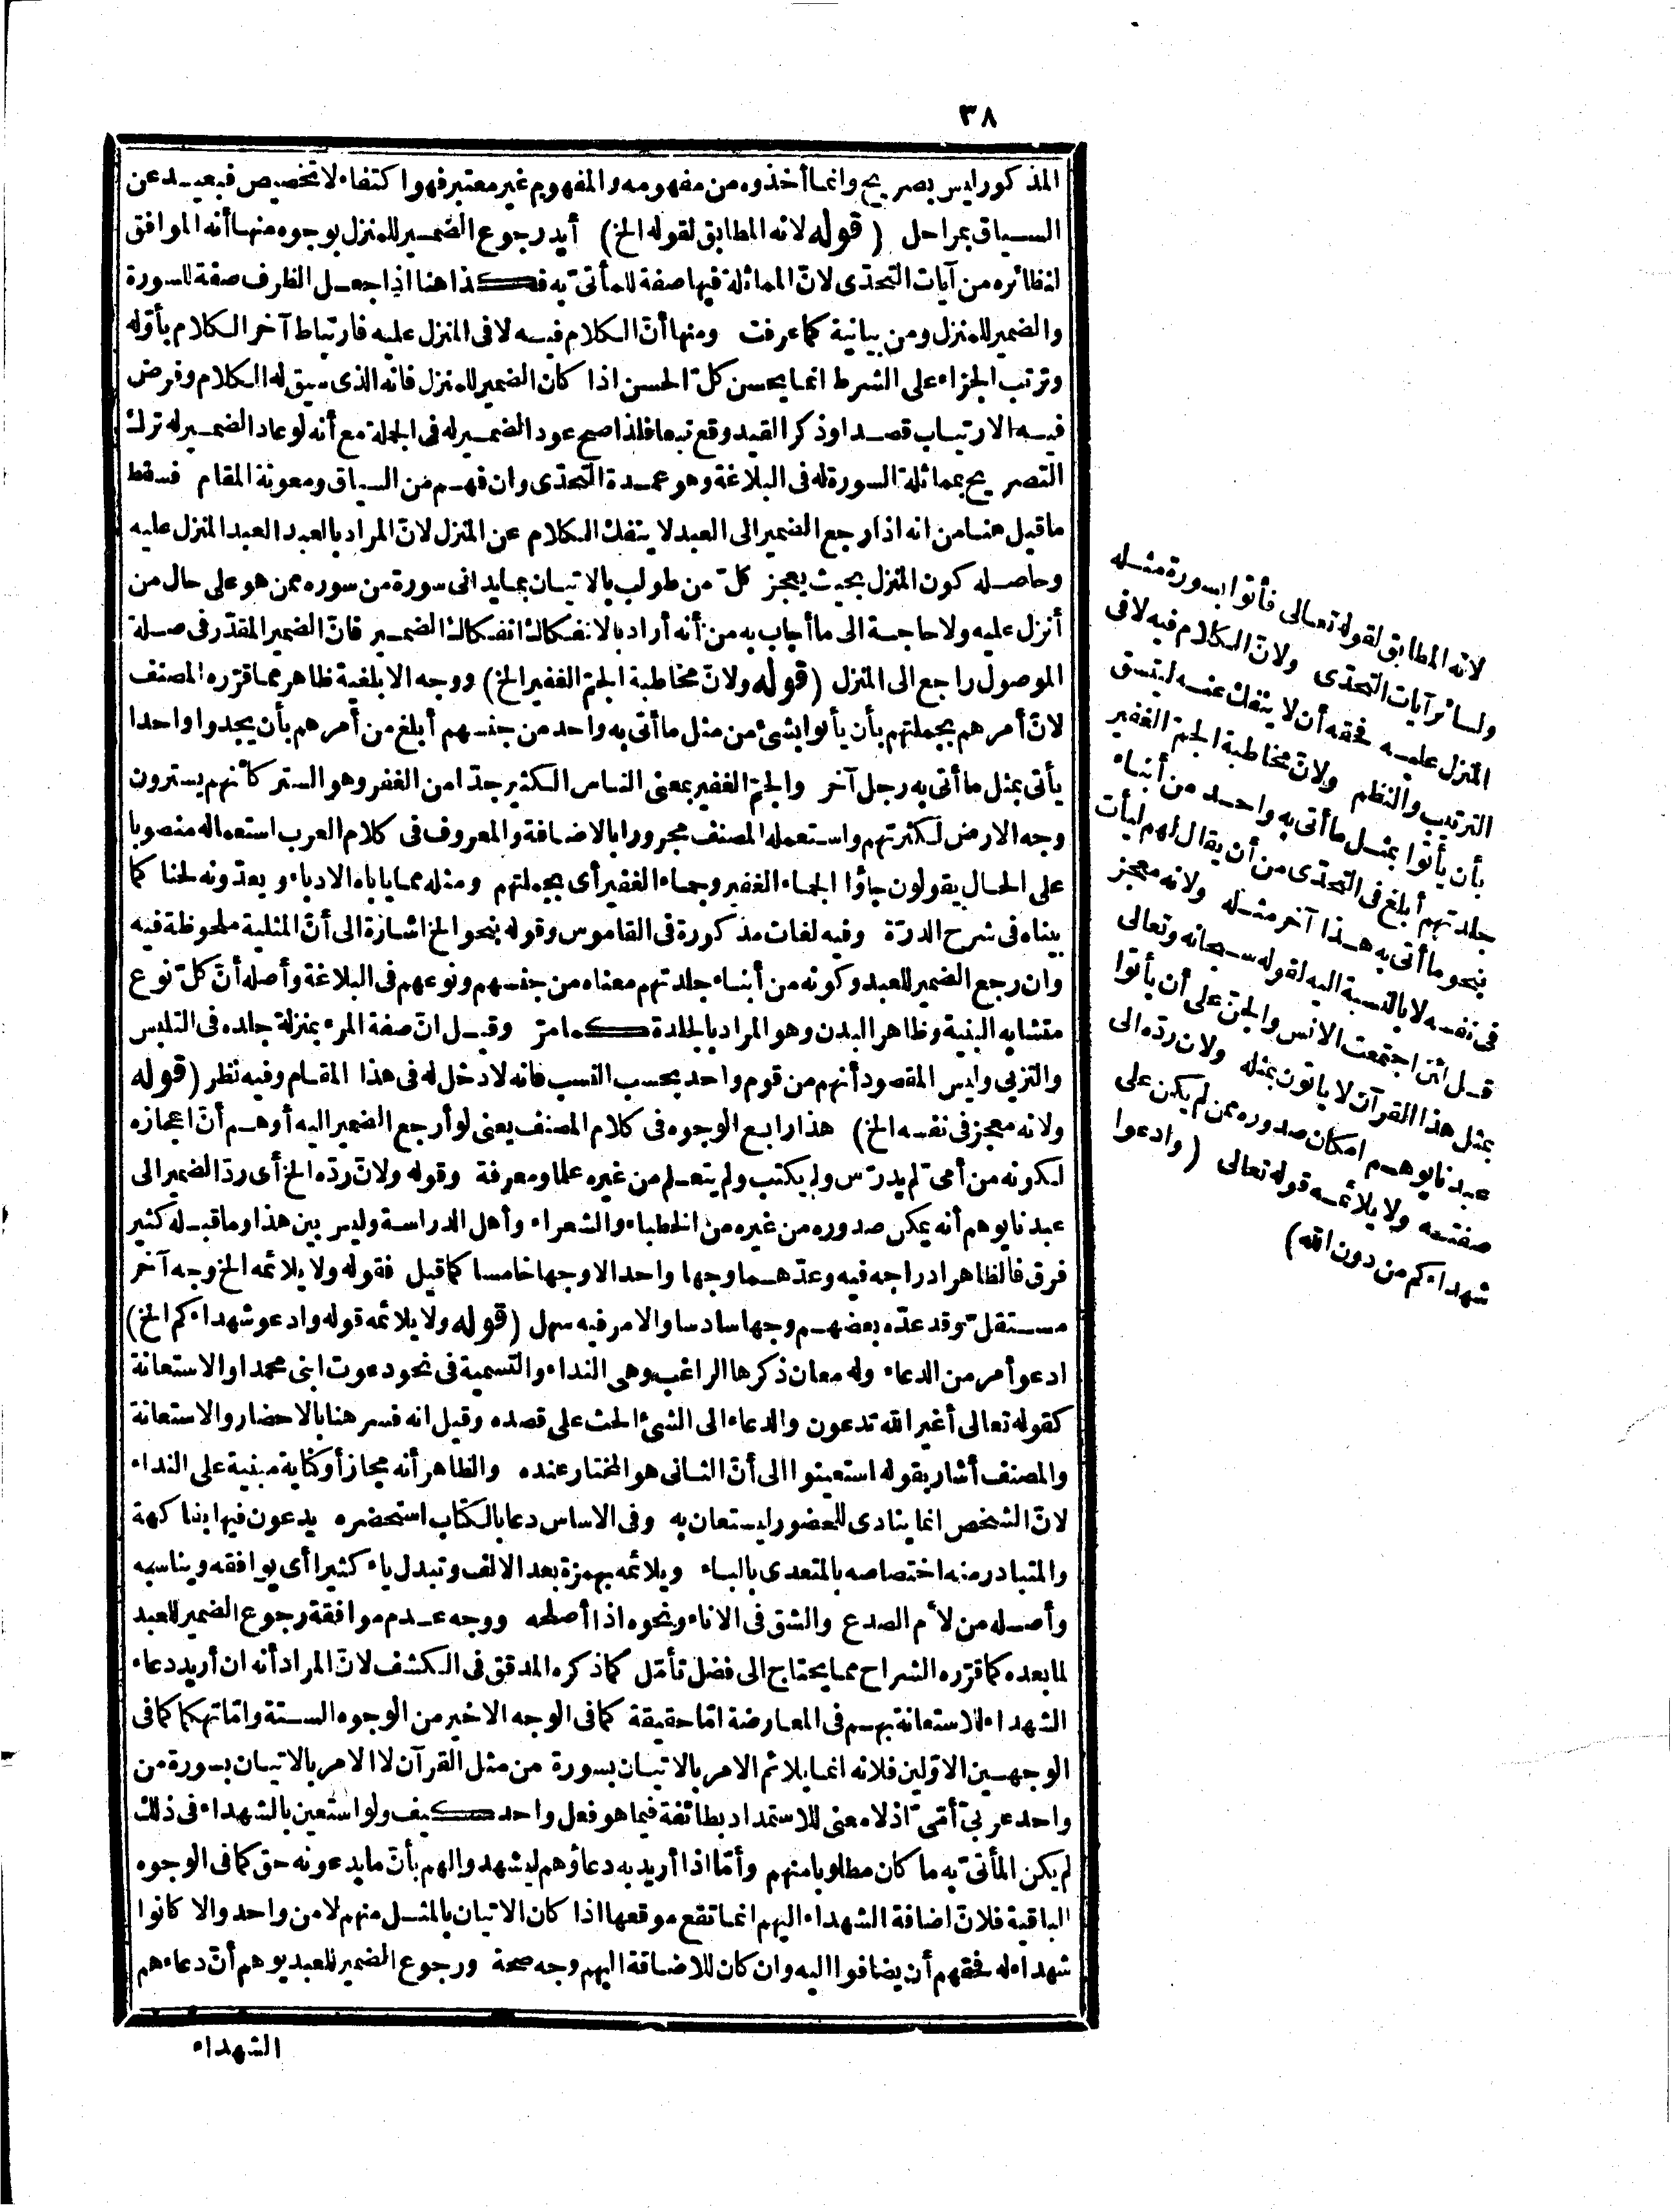 ٣٨
المذكور ليس بصريح وانما أخذوه من مفهومه والمفهوم غير معتبر فهو اكتفاء لا تخصيص فبعيد عن
السياق بمراحل (قوله لانه المطابق لقوله الخ) أيد رجوع الضمير للمنزل بوجوه منها أنه الموافق
لنظائره من آيات التحدّى لانّ المماثلة فيها صفة للمأتىّ به فكذا هنا اذا جعل الظرف صفة للسورة
والضمير للمنزل ومن بيانية كما عرفت ومنها أنّ الكلام فيه لا فى المنزل عليه فارتباط آخر الكلام بأوّله
وترتب الجزاء على الشرط انما يحسن كلّ الحسن اذا كان الضمير للمنزل فانه الذى سيق له الكلام وفرض
فيه الارتياب قصدا وذكر القيد وقع تبعا فلذا صح عود الضمير له فى الجملة مع أنه لو عاد الضمير له ترك
التصريح بمماثلة السورة له فى البلاغة وهو عمدة التحدّى وان فهم من السياق ومعونة المقام فسقط
ما قيل هنا من انه اذا رجع الضمير الى العبد لا ينفك الكلام عن المنزل لانّ المراد بالعبد العبد المنزل عليه
وحاصله كون المنزل بحيث يعجز كلّ من طولب بالاتيان بما يدانى سورة من سوره ممن هو على حال من
أنزل عليه ولا حاجة الى ما أجاب به من أنه أراد بالانفكاك انفكاك الضمير فانّ الضمير المقدّر فى صلة
الموصول راجع الى المنزل (قوله ولانّ مخاطبة الجمّ الغفير الخ) ووجه الابلغية ظاهر مما قرّره المصنف
لانّ أمرهم بجملتهم بأن يأتوا بشئ من مثل ما أتى به واحد من جنسهم أبلغ من أمرهم بأن يجدوا واحدا
يأتى بمثل ما أتى به رجل آخر والجمّ الغفير بمعنى الناس الكثير جدّا من الغفر وهو الستر كأنهم يسترون
وجه الارض لكثرتهم واستعمله المصنف مجرورا بالاضافة والمعروف فى كلام العرب استعماله منصوبا
على الحال يقولون جاؤا الجماء الغفير وجماء الغفير أى بجملتهم ومثله مما يأباه الادباء ويعدّونه لحنا كما
بيناه فى شرح الدرّة وفيه لغات مذكورة فى القاموس وقوله بنحو الخ اشارة الى أنّ المثلية ملحوظة فيه
وان رجع الضمير للعبد وكونه من أبناء جلدتهم معناه من جنسهم ونوعهم فى البلاغة وأصله أنّ كلّ نوع
متشابه البنية وظاهر البدن وهو المراد بالجلدة كما مرّ وقيل انّ صفة المرء بمنزلة جلده فى التلبس
والتزيى وليس المقصود أنهم من قوم واحد بحسب النسب فانه لا دخل له فى هذا المقام وفيه نظر (قوله
ولانه معجز فى نفسه الخ) هذا رابع الوجوه فى كلام المصنف يعنى لو أرجع الضمير اليه أوهم أنّ اعجازه
لكونه من أمىّ لم يدرّس ولم يكتب ولم يتعلم من غيره علما ومعرفة وقوله ولانّ ردّه الخ أى ردّ الضمير الى
عبدنا يوهم أنه يمكن صدوره من غيره من الخطباء والشعراء وأهل الدراسة وليس بين هذا وما قبله كثير
فرق فالظاهر ادراجه فيه وعدّهما وجها واحدا لا وجها خامسا كما قيل فقوله ولا يلائمه الخ وجه آخر
مستقلّ وقد عدّه بعضهم وجها سادسا والامر فيه سهل (قوله ولا يلائمه قوله وادعو شهداءكم الخ)
ادعو أمر من الدعاء وله معان ذكرها الراغب وهى النداء والتسمية فى نحو دعوت ابنى محمدا والاستعانة
كقوله تعالى أغير الله تدعون والدعاء الى الشئ الحث على قصده وقيل انه فسر هنا بالاحضار والاستعانة
والمصنف أشار بقوله استعينوا الى أنّ الثانى هو المختار عنده والظاهر أنه مجاز أو كناية مبنية على النداء
لانّ الشخص انما ينادى للحضور ليستعان به وفى الاساس دعا بالكتاب استحضره يدعون فيها بفاكهة
والمتبادر منه اختصاصه بالمتعدى بالباء ويلائمه بهمزة بعد الالف وتبدل ياء كثيرا أى يوافقه ويناسبه
وأصله من لأم الصدع والشق فى الاناء ونحوه اذا أصلحه ووجه عدم موافقة رجوع الضمير للعبد
لما بعده كما قرّره الشراح مما يحتاج الى فضل تأمّل كما ذكره المدقق فى الكشف لانّ المراد أنه ان أريد دعاء
الشهداء للاستعانة بهم فى المعارضة امّا حقيقة كما فى الوجه الاخير من الوجوه الستة وامّا تهكما كما فى
الوجهين الاوّلين فلانه انما يلائم الامر بالاتيان بسورة من مثل القرآن لا الامر بالاتيان بسورة من
واحد عربىّ أمّىّ اذ لا معنى للاستمداد بطائفة فيما هو فعل واحد كيف ولو استعين بالشهداء فى ذلك
لم يكن المأتىّ به ما كان مطلوبا منهم وأمّا اذا أريد به دعاؤهم ليشهدوا لهم بأنّ ما يدعونه حق كما فى الوجوه
الباقية فلانّ اضافة الشهداء اليهم انما تقع موقعها اذا كان الاتيان بالمثل منهم لا من واحد والا كانوا
شهداء له فحقهم أن يضافوا اليه وان كان للاضافة اليهم وجه صحة ورجوع الضمير للعبد يوهم أنّ دعاءهم
الشهداء
لانه المطابق لقوله تعالى فأتوا بسورة مثله
ولسائر آيات التحدّى ولانّ الكلام فيه لا فى
المنزل عليه فحقه أن لا ينفك عنه ليتسق
الترتيب والنظم ولانّ مخاطبة الجمّ الغفير
بأن يأتوا بمثل ما أتى به واحد من أبناء
جلدتهم أبلغ فى التحدّى من أن يقال لهم ليأت
بنحو ما أتى به هذا آخر مثله ولانه معجز
فى نفسه لا بالنسبة اليه لقوله سبحانه وتعالى
قل لئن اجتمعت الانس والجنّ على أن يأتوا
بمثل هذا القرآن لا يأتون بمثله ولان ردّه الى
عبدنا يوهم امكان صدوره ممن لم يكن على
صفته ولا يلائمه قوله تعالى (وادعوا
شهداءكم من دون الله)